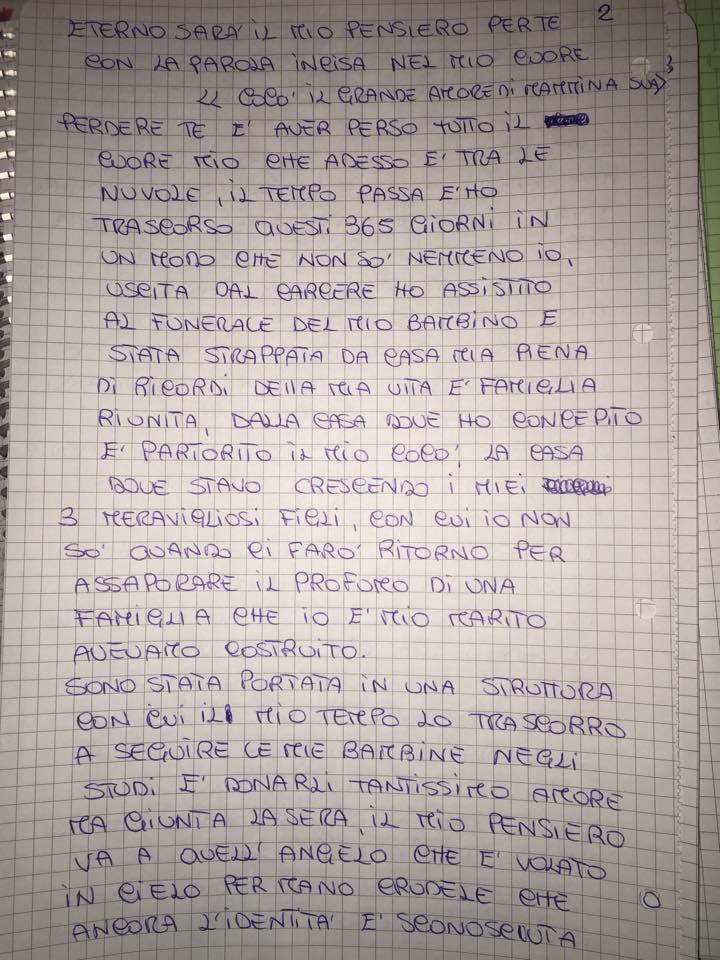 2
ETERNO SARA' IL MIO PENSIERO PER TE
CON LA PAROLA INCISA NEL MIO CUORE
<< COCO' IL GRANDE AMORE DI MAMMINA SUA>>
PERDERE TE E' AVER PERSO TUTTO IL
CUORE MIO CHE ADESSO E' TRA LE
NUVOLE, IL TEMPO PASSA E' HO
TRASCORSO QUESTI 365 GIORNI IN
UN MODO CHE NON SO' NEMMENO IO,
USCITA DAL CARCERE HO ASSISTITO
AL FUNERALE DEL MIO BAMBINO E
STATA STRAPPATA DA CASA MIA PIENA
DI RICORDI DELLA MIA VITA E' FAMIGLIA
RIUNITA, DALLA CASA DOVE HO CONCEPITO
E' PARTORITO IL MIO COCO', LA CASA
DOVE STAVO CRESCENDO I MIEI
3 MERAVIGLIOSI FIGLI, CON CUI IO NON
SO' QUANDO CI FARO' RITORNO PER
ASSAPORARE IL PROFUMO DI UNA
FAMIGLIA CHE IO E' MIO MARITO
AVEVAMO COSTRUITO.
SONO STATA PORTATA IN UNA STRUTTURA
CON CUI IL MIO TEMPO LO TRASCORRO
A SEGUIRE LE MIE BAMBINE NEGLI
STUDI E' DONARLI TANTISSIMO AMORE
MA GIUNTA LA SERA, IL MIO PENSIERO
VA A QUELL'ANGELO CHE E' VOLATO
IN CIELO PER MANO CRUDELE CHE
ANCORA L'IDENTITA' E' SCONOSCIUTA